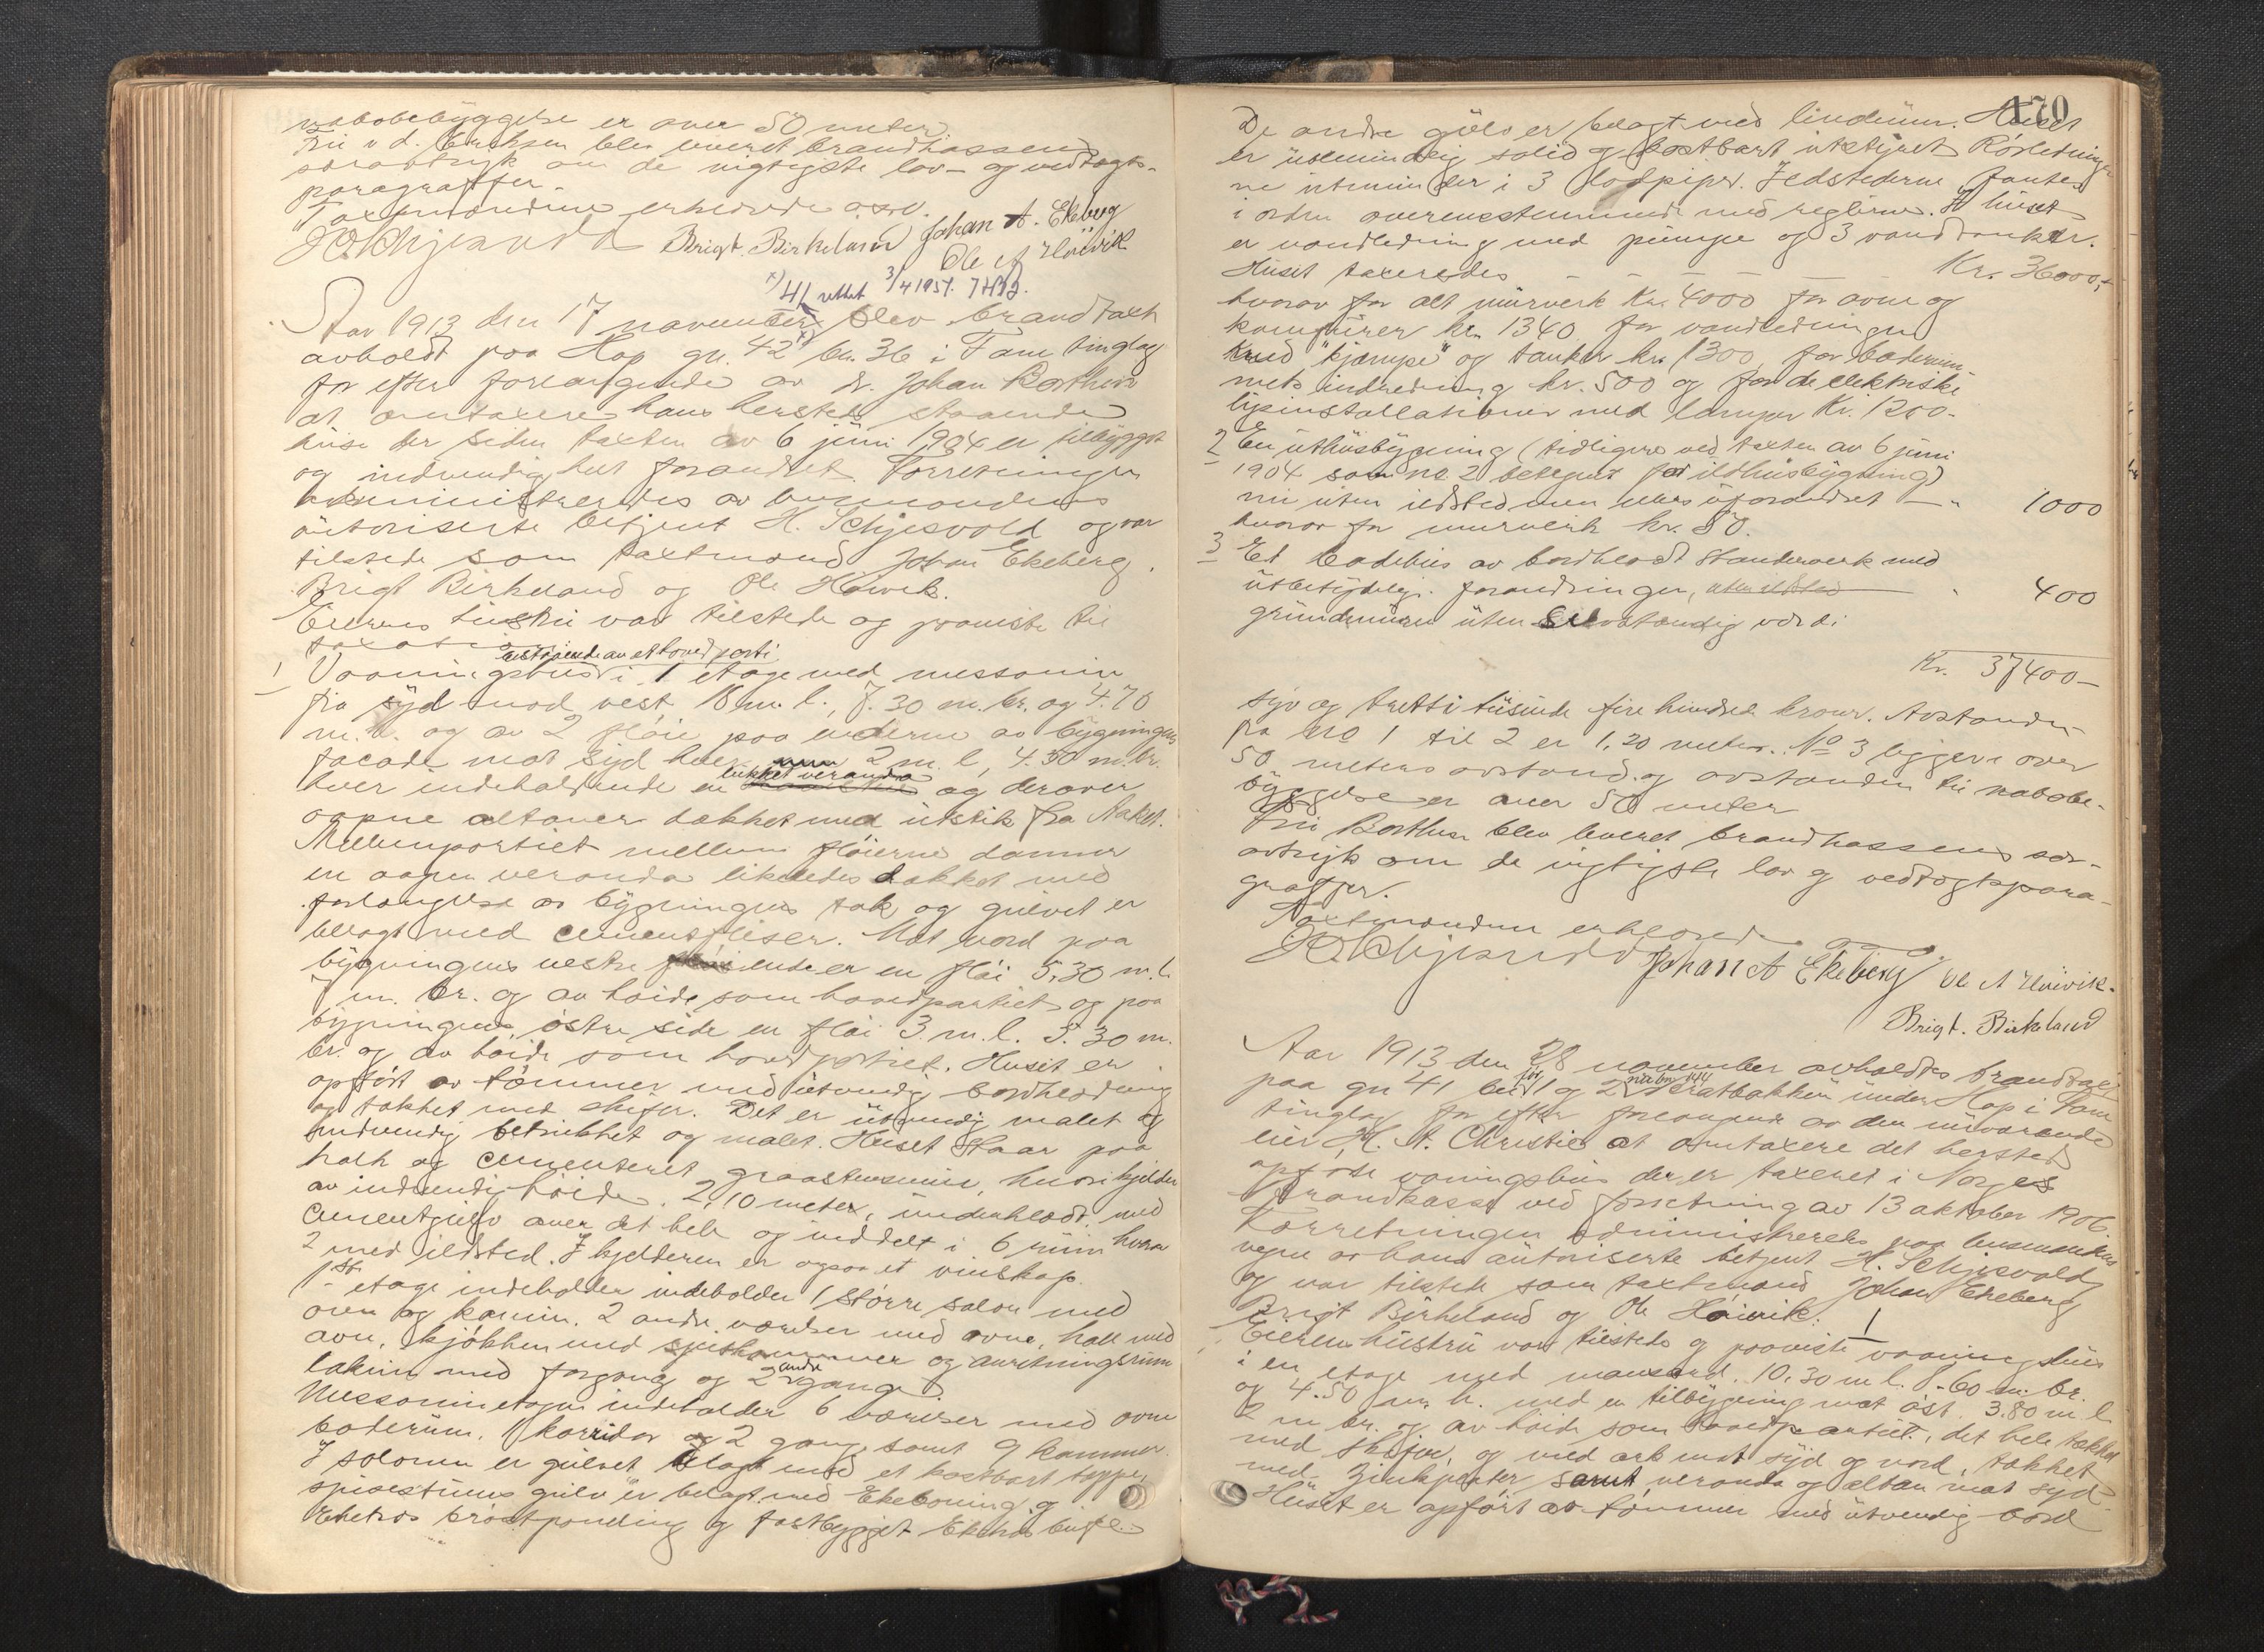 nabobebyggelse er over 50 meter.
Fru v d. Erichsen blev leveret brandkassens
særavtryk om de vigtigste lov- og vedtægts-
paragraffer.
Taxtmændene erklærede o.s.v.
HSchjesvold Brigt. Birkeland Johan A. Ekeberg
Ole A Høivik
x) 41 rettet 3/4 1951.
Aar 1913 den 17 november blev brandtaxt
avholdt paa Hop gn. 42 x) bn. 36 i Fane tinglag
for efter forlangende av dr. Johan Borthen
at omtaxere hans hersteds staaende
huse der siden taxten av 6 juni 1904 er tilbygget
og indvendig helt forandret. Forretningen
administreredes av lensmandens
autoriserte betjent H. Schjesvold og var
tilstede som taxtmænd Johan Ekeberg,
Brigt Birkeland og Ole Høivik.
Eierens hustru var tilstede og paaviste til
taxation
bestaaende av et hovedparti
1 Vaaningshus i 1 etage med messanin
fra syd mod vest 18 m. l., 7.30 m. br. og 4.70
m. h. og av 2 fløie paa enderne av bygningens
facade mot syd hver 2 m. l, 4.30 m. br.
hver indeholdende en lukket veranda og derover
aapne altaner dækket med utstik fra taket.
Mellempartiet mellem fløierne danner
en aapen veranda likeledes dækket med
forlængelse av bygningens tak og gulvet er
belagt med cementfliser. Mot nord paa
bygningens vestre ende er en fløi 5,30 m. l.
7 m. br. og av høide som hovedpartiet og paa
bygningens østre side en fløi 3. m. l. 5.30 m.
br. og av høide som hovedpartiet. Huset er
opført av tømmer med utvendig bordklædning
og tækket med skifer. Det er utvendig malet og
indvendig betrukket og malet. Huset staar paa
kalk og cementeret graastensmur, hvori kjelder
av indvendig høide. 2,10 meter, underklædt, med
cementgulv over det hele og inddelt i 6 rum hvorav
2 med ildsted. I kjelderen er ogsaa et vinskap.
1ste etage indeholder indeholder 1 større salon med
ovn og kamin. 2 andre værelser med ovne, hall med
ovn, kjøkken med spiskammer og anretningsrum
lakum med forgang og 2 andre gange.
Messaninetagen indeholder 6 værelser med ovne
baderum, 1 korridor og 2 gange, samt 9 kammer.
I salonen er gulvet belagt med et kostbart teppe,
spisestuens gulv er belagt med Ekeboning og
Eketræs brøstpanding og fastbygget Eketræs buffet.
170
De andre gulv er belagt med linolium. Huset
er ualmindelig solid og kostbart utstyret. Rørledninger-
ne utmunder i 3 lodpiper. Ildstederne fantes
i orden overensstemmende med reglerne. I huset
er vandledning med pumpe og 3 vandtanker.
Huset taxeredes — — — — Kr. 36000,-
hvorav for alt murverk Kr. 4000 for ovne og
komfurer kr. 1340 for vandledningen
med "kjæmpe" og tanker kr. 1300, for baderum-
mets indredning kr. 500 og for de elektriske
lysinstallationer med lamper Kr. 1200-
2 En uthusbygning (tidligere ved taxten av 6 juni
1904 som no 2 betegnet for ildhusbygning)
nu uten ildsted men ellers uforandret — " 1000
hvorav for murverk kr. 50.
3 Et badehus av bordklædt standerverk med
ubetydelige forandringer, uten ildsted — " 400
grundmuren uten selvstændig værdi
Kr. 37400-
syv og tretti tusinde fire hundrede kroner. Avstanden
fra No 1 til 2 er 1,20 meter. No 3 ligger i over
50 meters avstand og avstanden til nabobe-
byggelse er over 50 meter
Fru Borthen blev leveret brandkassens sær-
avtryk om de vigtigste lov og vedtægtspara-
graffer.
Taxtmændene erklærede o.s.v.
HSchjesvold Johan A Ekeberg Ole A Høivik.
Brigt. Birkeland
Aar 1913 den 28 november avholdtes brandtaxt
paa gn 41 bn 1 og 2 Bratbakken under Hop i Fane
tinglag for efter forlangende av den nuværende
eier H. A. Christie at omtaxere det hersteds
opførte vaaningshus der er taxeret i Norges
Brandkasse ved forretning av 13 oktober 1906.
Forretningen administreredes paa lensmandens
vegne av hans autoriserte betjent H. Schjesvold
og var tilstede som taxtmænd Johan Ekeberg
Brigt Birkeland og Ole Høivik.
Eierens hustru var tilstede og paaviste 1 vaaningshus
i en etage med mansard. 10,30 m l. 8.60 m. br.
og 4.50 m. h. med en tilbygning mot øst 3.80 m l.
2 m br. og av høide som hovedpartiet, det hele tækket
med skifer, og med ark mot syd og nord, tækket
med zinkplater, samt veranda og altan mot syd.
Huset er opført av tømmer med utvendig bord